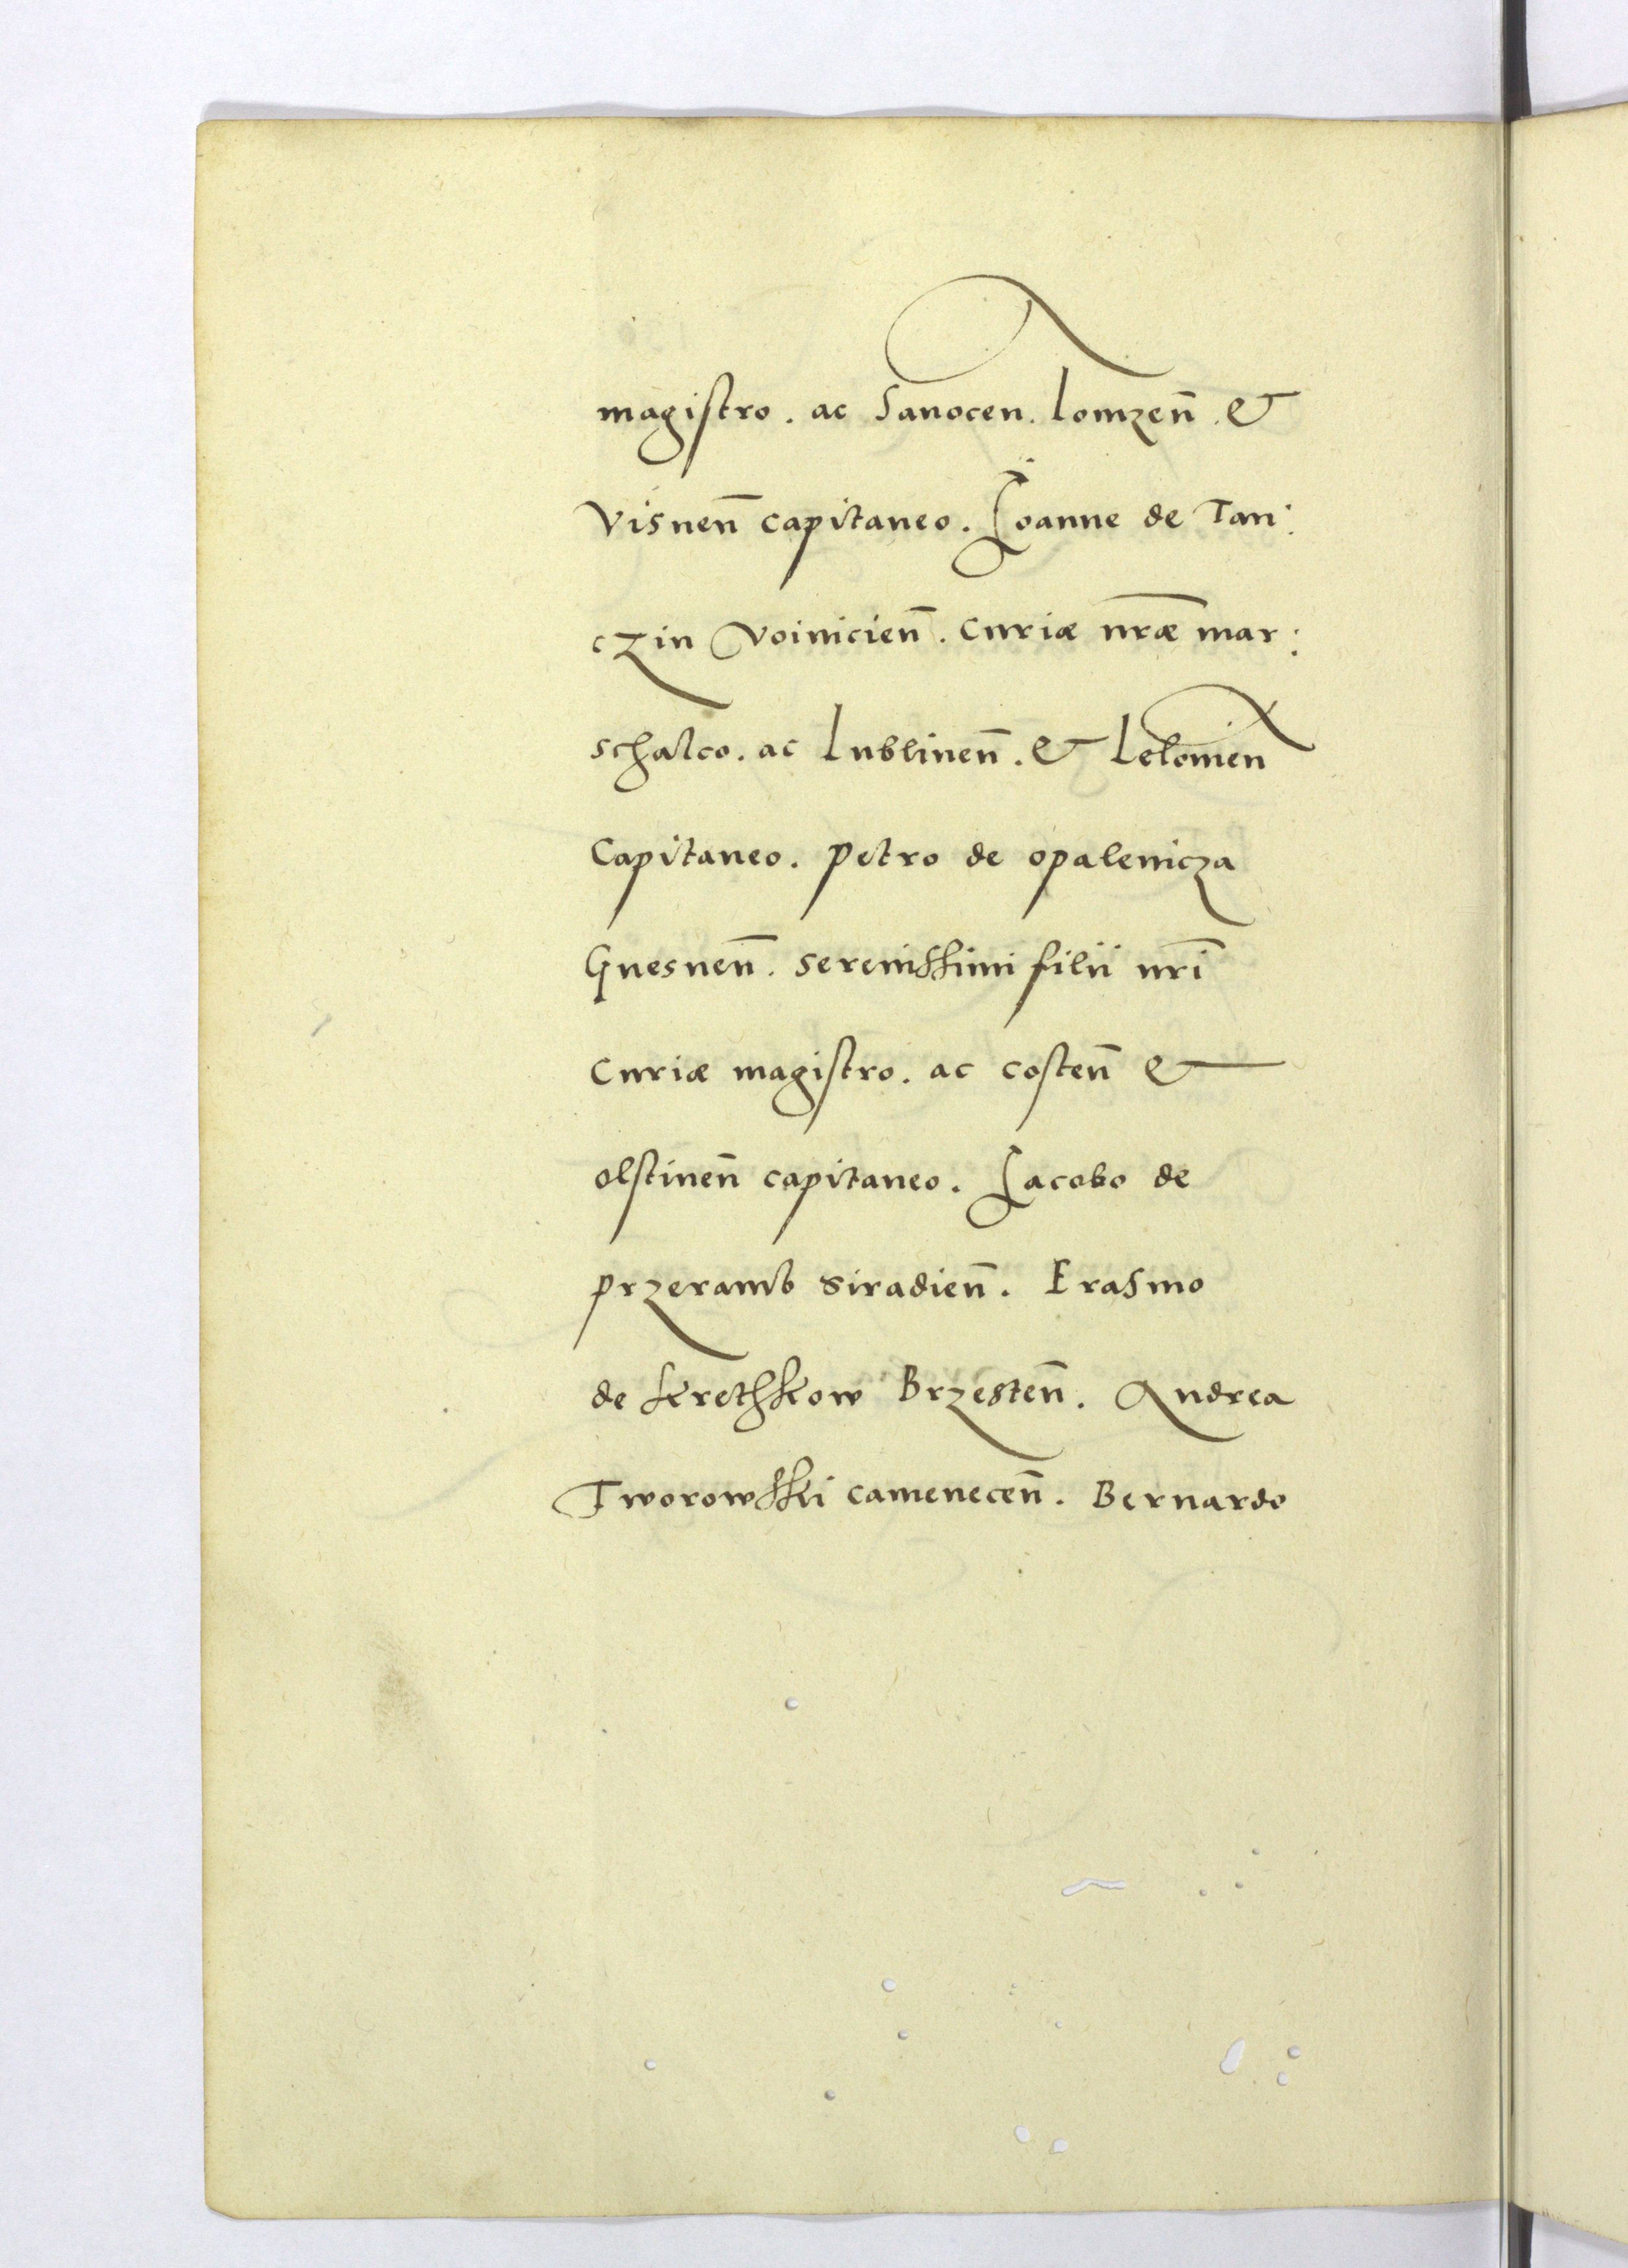 magistro. ac Sanocen. Lomzen̄. &
Visnen̄ capitaneo. Ioanne de Tan:
czin Voinicien̄. curiæ nr̄æ mar:
schalco. ac Lublinen̄. & Lelowien̄
Capitaneo. Petro de opalenicza
Gnesnen̄. serenissimi filii nr̄i
curiæ magistro. ac costen̄ &
olstinen̄ capitaneo. Iacobo de
przeramb siradien̄. Erasmo
de krethkow Brzesten̄. Andrea
Tworowski camenecen̄. Bernardo